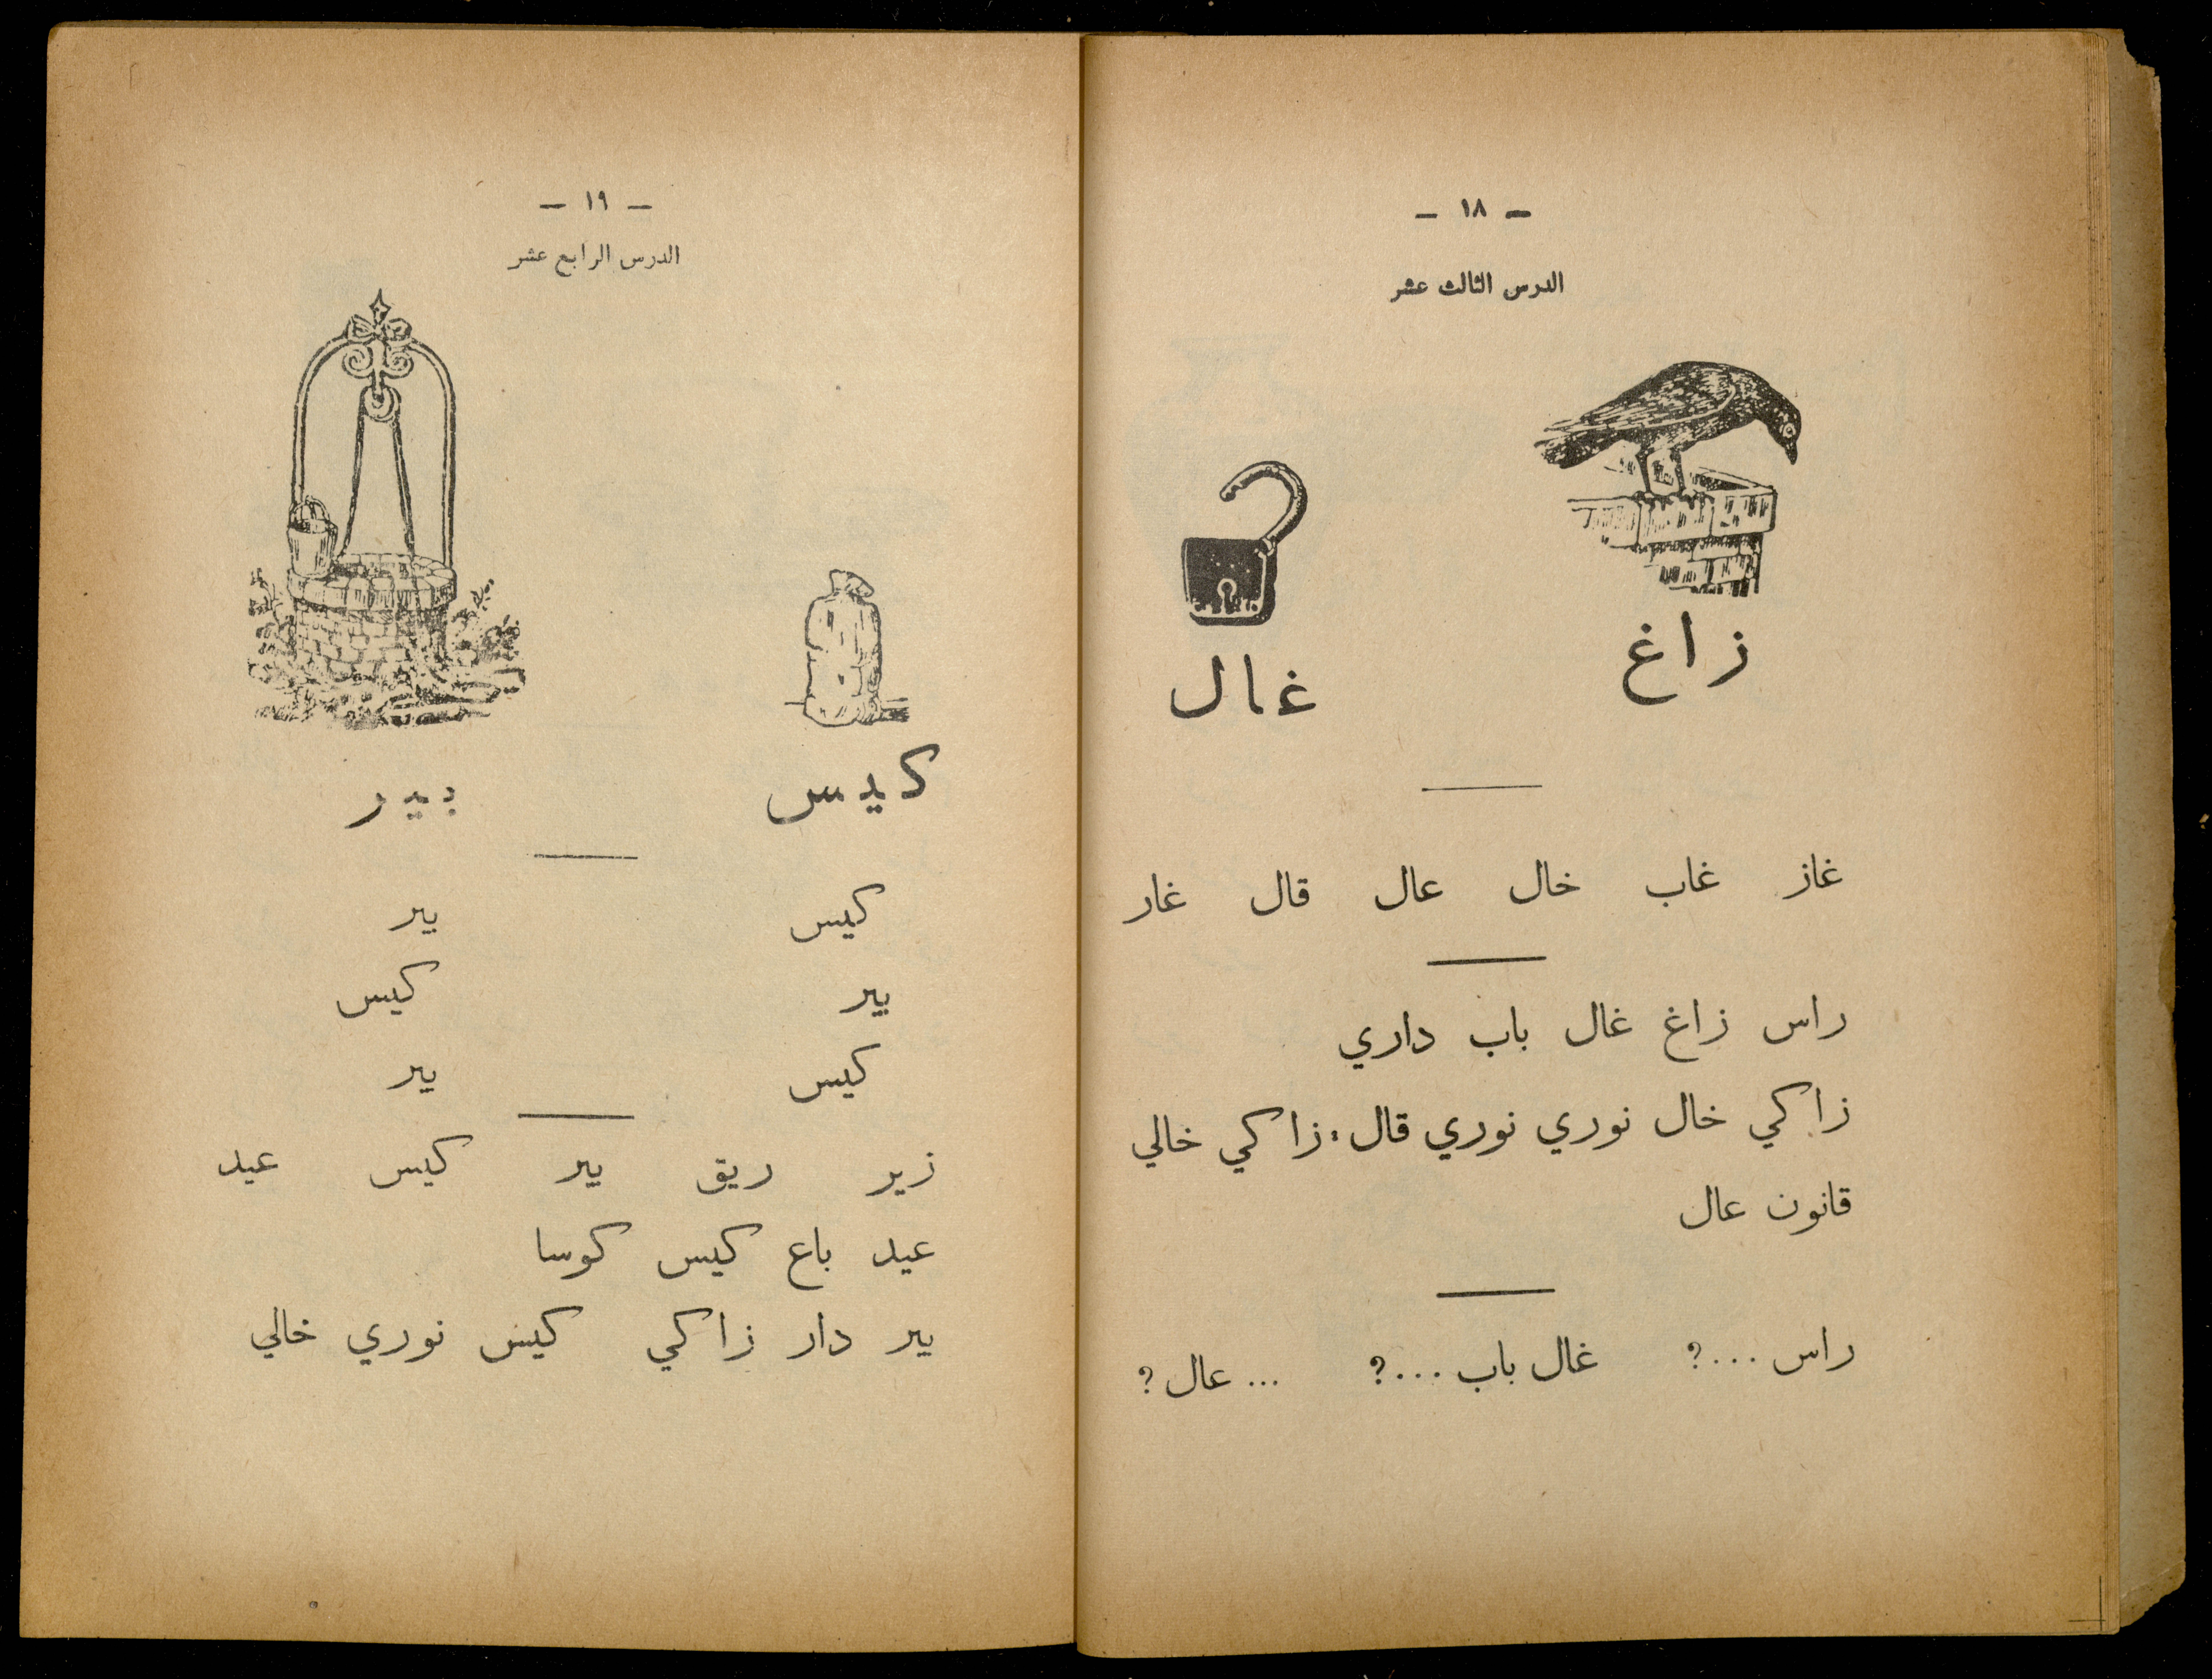 — ١٨ —
الدرس الثالث عشر
زاغ
غال
غاز غاب خال عال قال غار
راس زاغ غال باب داري
زاكي خال نوري نوري قال: زاكي خالي
قانون عال
راس ...؟ غال باب ...؟ ... عال؟
— ١٩ —
الدرس الرابع عشر
كيس
بير
كيس بير
بير كيس
كيس بير
زير ريق بير كيس عيد
عيد باع كيس كوسا
بير دار زاكي كيس نوري خالي